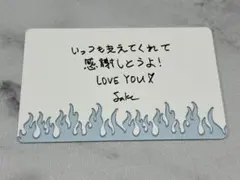 いっつも支えてくれて
感謝しとうよ！
LOVE YOU
Jake